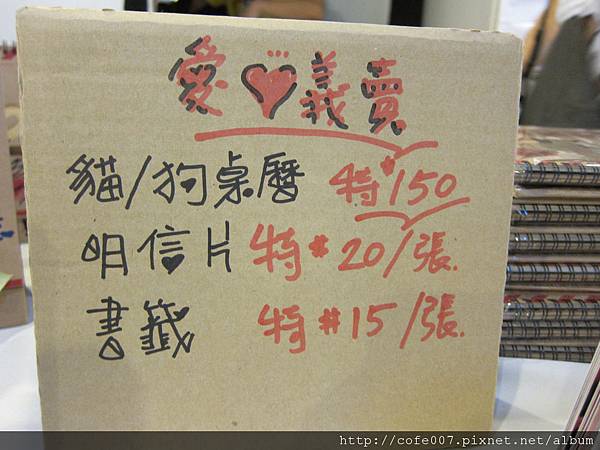 愛♥義賣
貓/狗桌曆 特#150
明信片 特#20/張.
書籤 特#15/張.
http://cofe007.pixnet.net/album